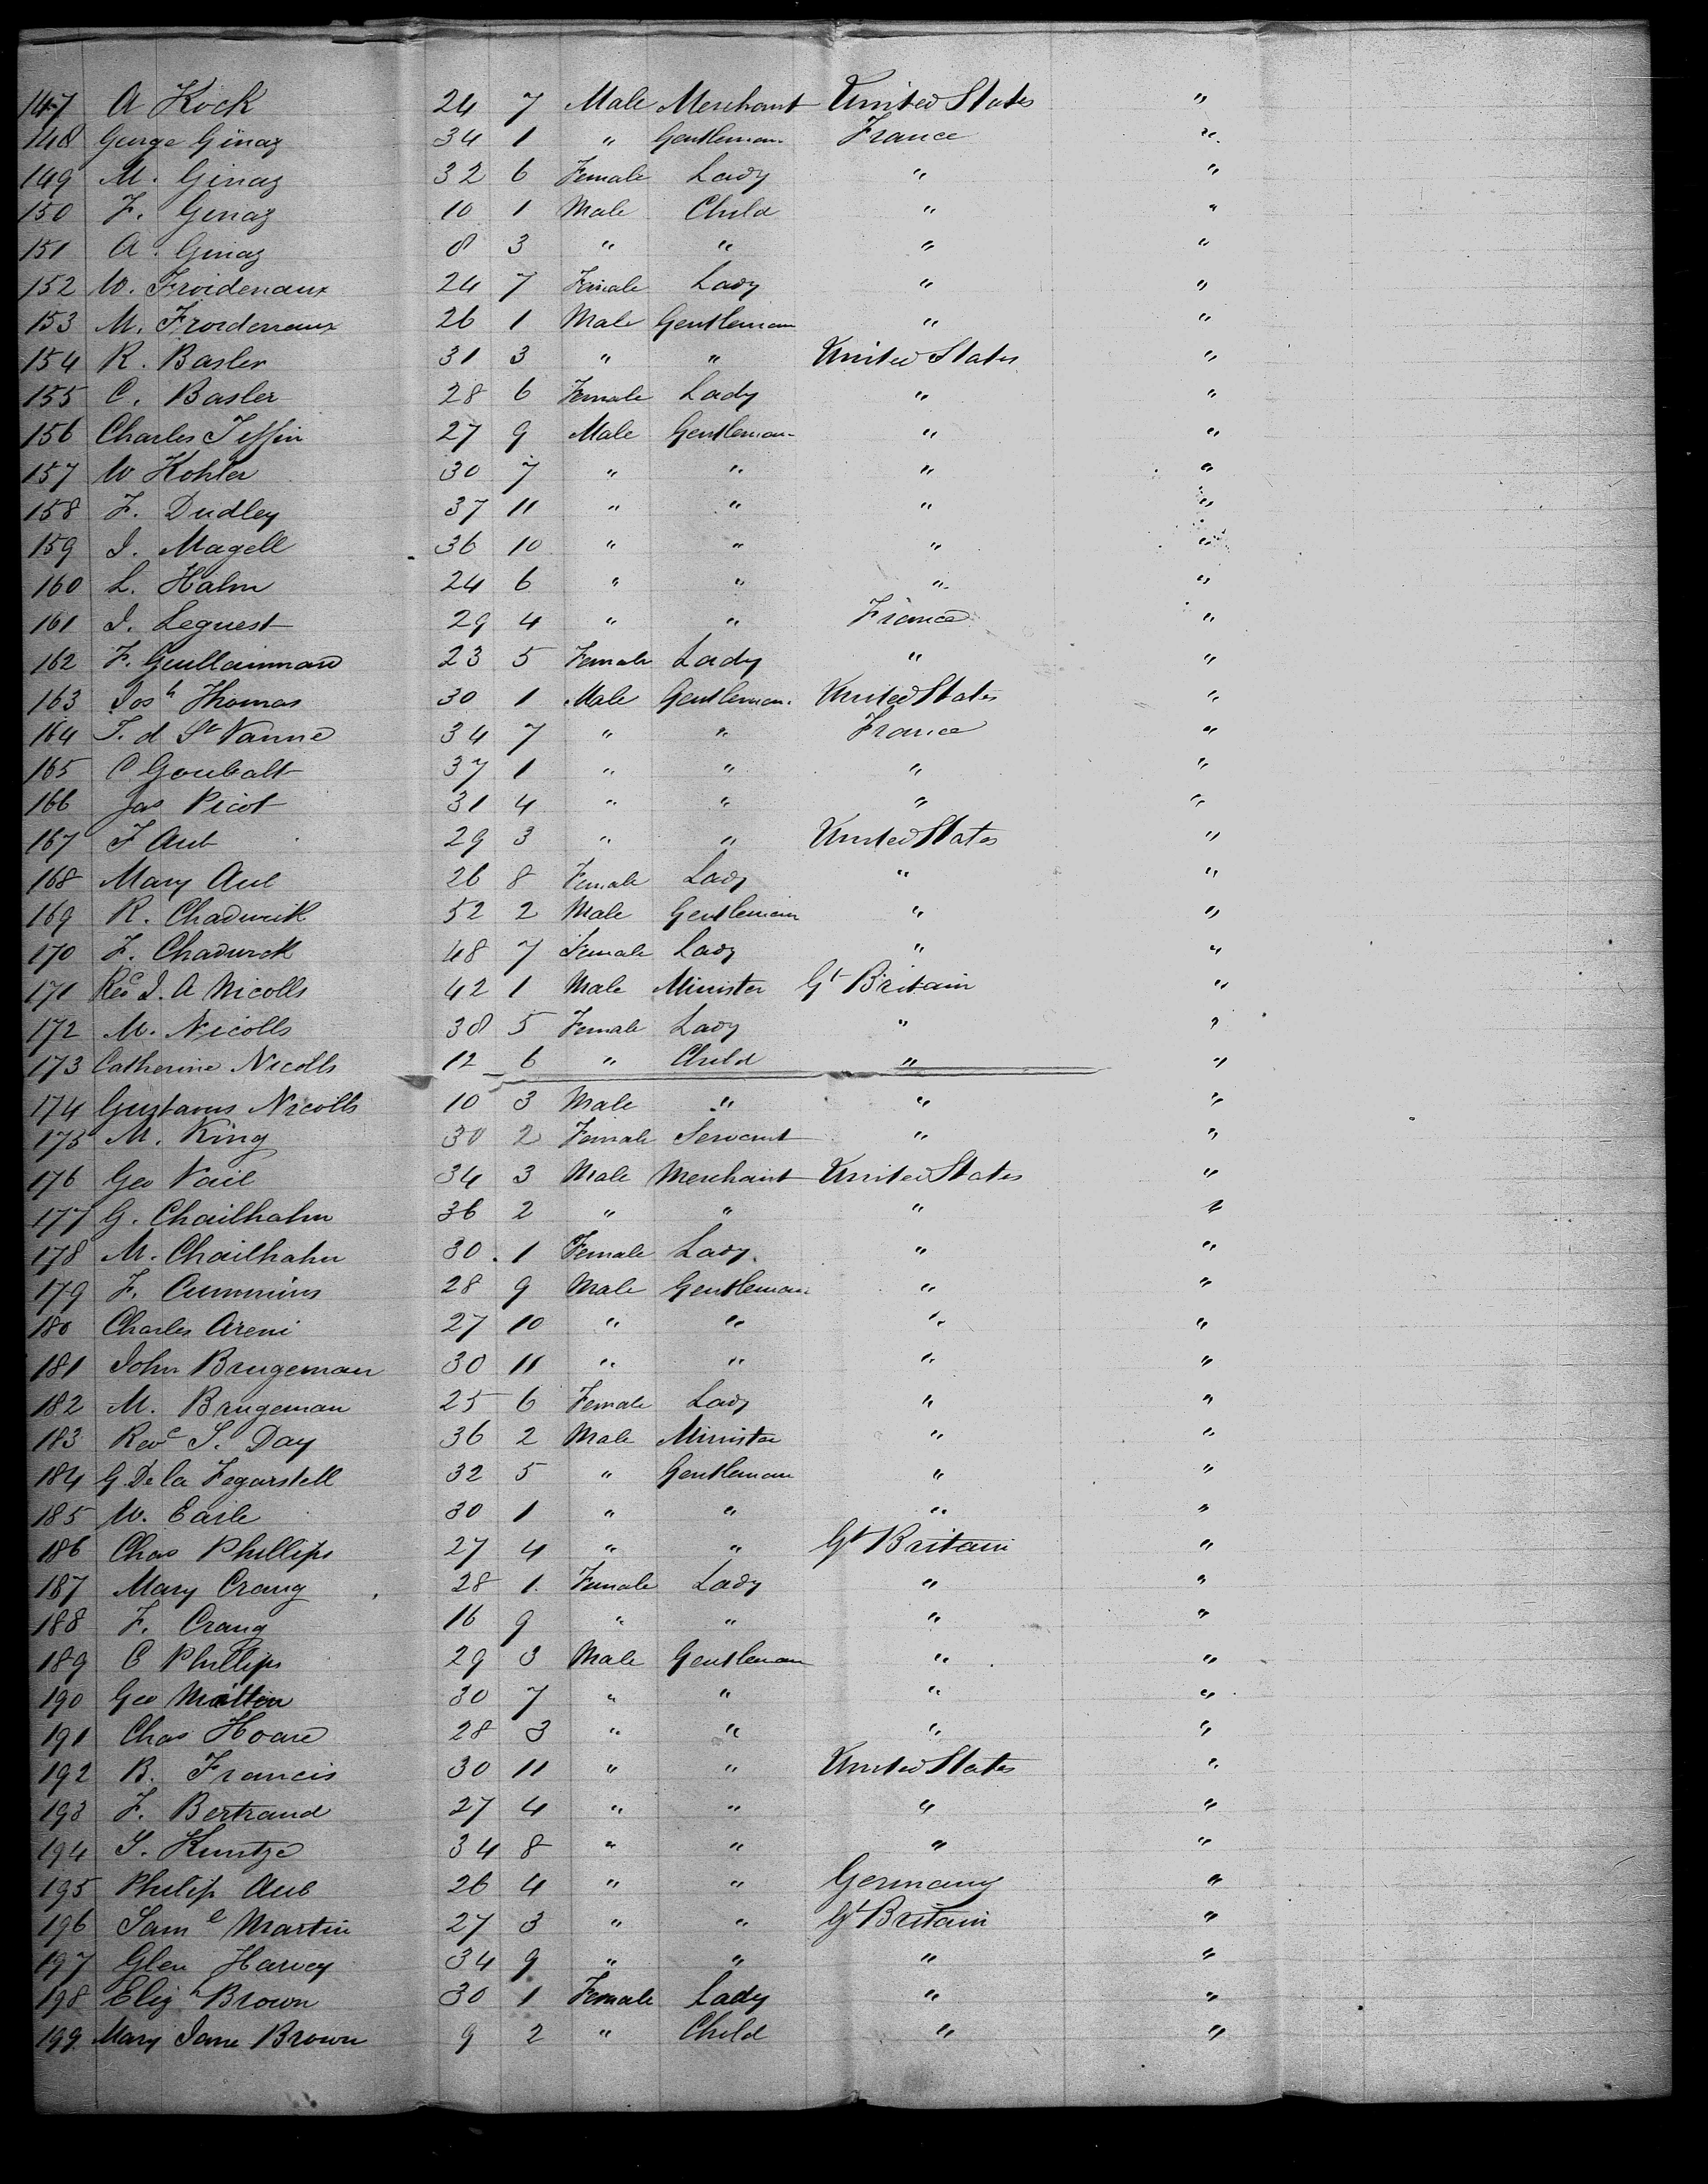 147 A Kock 24 7 Male Merchant United States "
148 George Ginaz 34 1 " Gentleman France "
149 M. Ginaz 32 6 Female Lady " "
150 F. Ginaz 10 1 Male Child " "
151 A. Ginaz 8 3 " " " "
152 W. Froidenaux 24 7 Female Lady " "
153 M. Froidenaux 26 1 Male Gentleman " "
154 R. Basler 31 3 " " United States "
155 C. Basler 28 6 Female Lady " "
156 Charles Tiffin 27 9 Male Gentleman " "
157 W Kohler 30 7 " " " "
158 F. Dudley 37 11 " " " "
159 I. Magell 36 10 " " " "
160 L. Halm 24 6 " " " "
161 I. Leguest 29 4 " " France "
162 F. 23 5 Female Lady " "
163 Josh Thomas 30 1 Male Gentleman United States "
164 T. d St Vanne 34 7 " " France "
165 C Goubalt 37 1 " " " "
166 Jas Picot 31 4 " " " "
167 F Aub 29 3 " " United States "
168 Mary Aub 26 8 Female Lady " "
169 R. Chadwick 52 2 Male Gentleman " "
170 F. Chadwick 48 7 Female Lady " "
171 I. A Nicolls 42 1 Male Minister Gt Britain "
172 M. Nicolls 38 5 Female Lady " "
173 Catherine Nicolls 12 6 " Child " "
174 Gustavus Nicolls 10 3 Male " " "
175 M. King 30 2 Female Servant " "
176 Geo Vail 34 3 Male Merchant United States "
177 G. Chailhahn 36 2 " " " "
178 M. Chailhahn 30 1 Female Lady " "
179 F. Cummins 28 9 Male Gentleman " "
180 Charles Areni 27 10 " " " "
181 John Brugeman 30 11 " " " "
182 M. Brugeman 25 6 Female Lady " "
183 Revd S. Day 36 2 Male Minister " "
184 G. De la Fogarstell 32 5 " Gentleman " "
185 W. Earle 30 1 " " " "
186 Chas Phillips 27 4 " " Gt Britain "
187 Mary Crang 28 1 Female Lady " "
188 F. Crang 16 9 " " " "
189 C Phillips 29 3 Male Gentleman " "
190 Geo 30 7 " " " "
191 Chas Hoare 28 3 " " " "
192 B. Francis 30 11 " " United States "
193 F. Bertrand 27 4 " " " "
194 S. Kuntze 34 8 " " " "
195 Philip Aub 26 4 " " Germany "
196 Saml Martin 27 3 " " Gt Britain "
197 Glen Harvey 34 9 " " " "
198 Elizh Brown 30 1 Female Lady " "
199 Mary Jane Brown 9 2 " Child " "